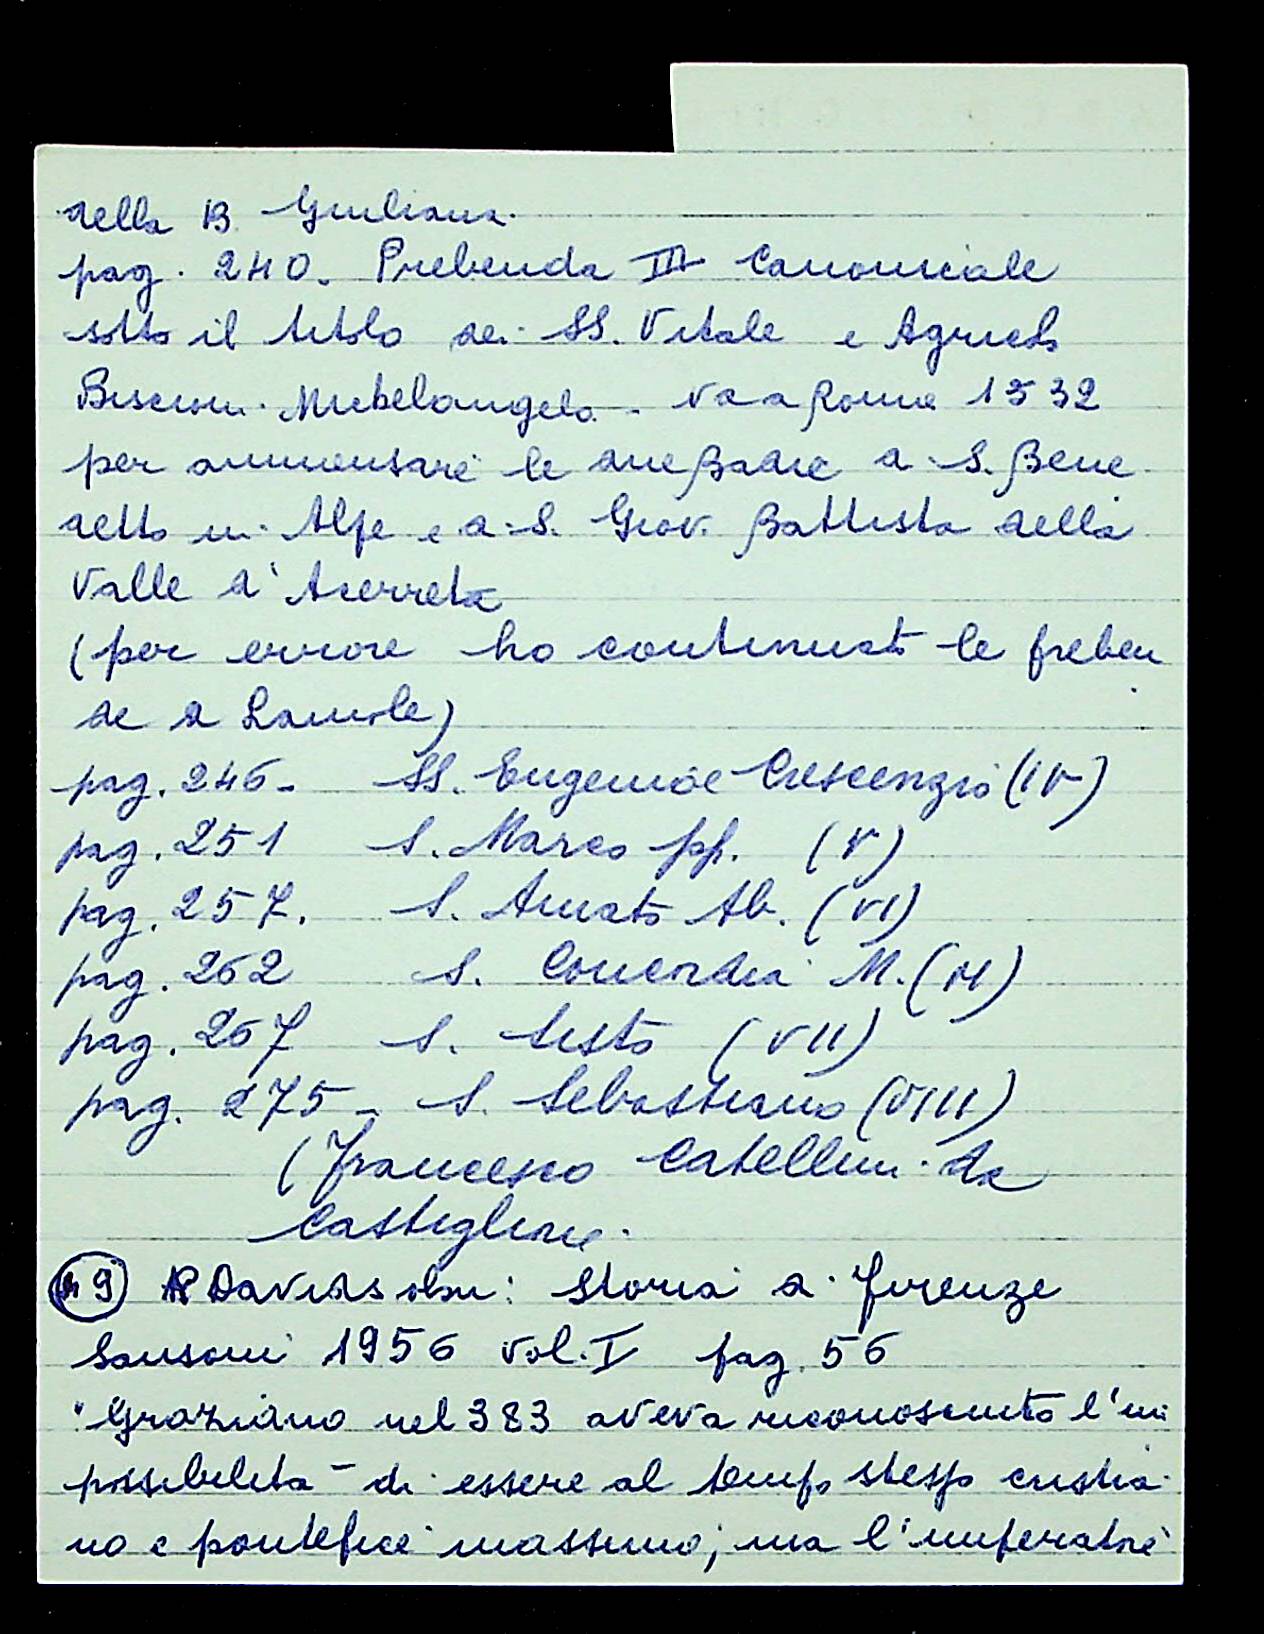 della B. Giuliana.
pag. 240. Prebenda III Canonicale
sotto il titolo dei SS. Vitale e Agricola
Biscioni Michelangelo - va a Roma 1532
per ammensare le due Badie a S. Bene
detto in Alpe e a S. Giov. Battista della
Valle d'Acerreta
(per errore ho continuato le preben
de a Lamole)
pag. 246 - SS. Eugenio e Crescenzio (IV)
pag. 251 S. Marco pp. (V)
pag. 257. S. Amato Ab. (VI)
pag. 262 S. Concordia M. (VI)
pag. 267 S. Sisto (VII)
pag. 275 - S. Sebastiano (VIII)
(Francesco Catellini da
Castiglione.
9) R Davidsohn: Storia di Firenze
Sansoni 1956 vol. I pag. 56
"Graziano nel 383 aveva riconosciuto l'im
possibilità - di essere al tempo stesso cristia
no e pontefice massimo; ma l'imperatore